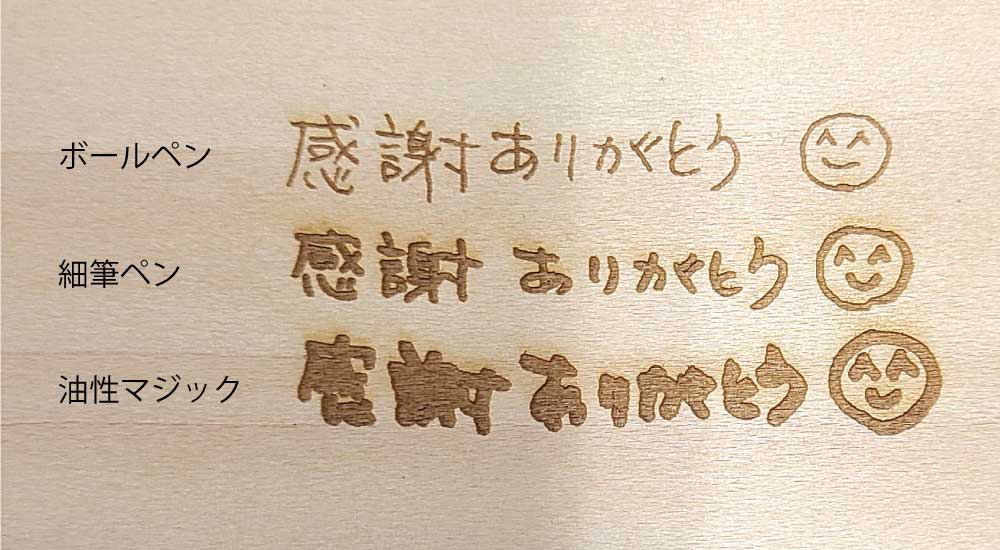 ボールペン 感謝ありがとう
細筆ペン 感謝 ありがとう
油性マジック 感謝ありがとう